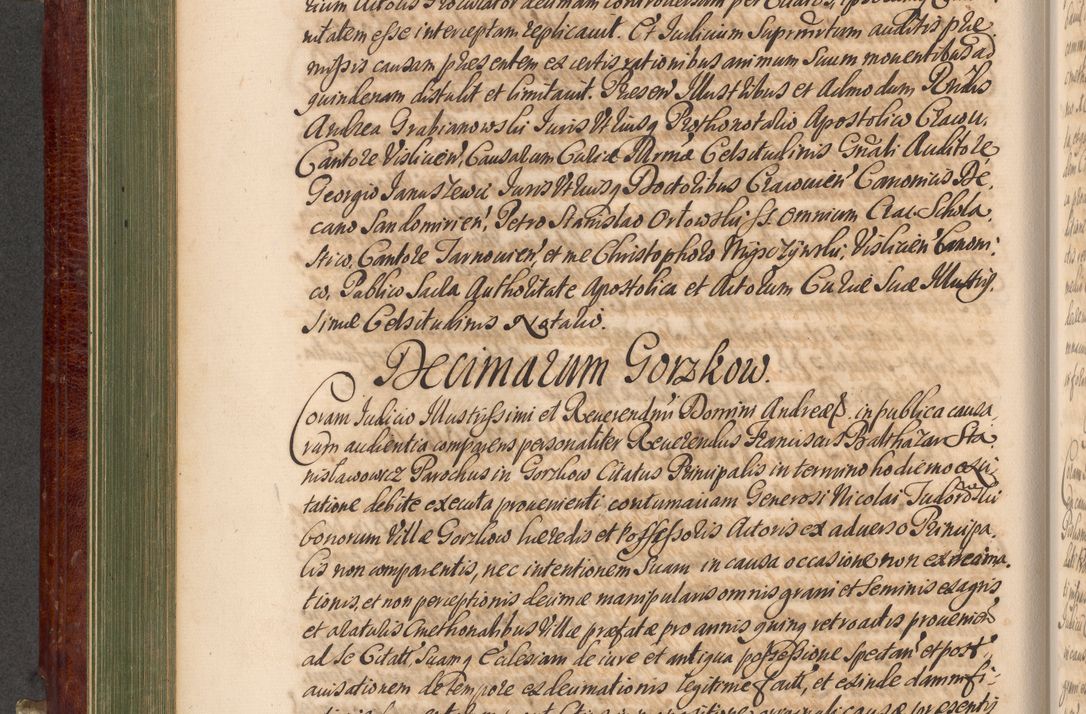 rium Actoris Procurator decimam controversam per Citatos, 
nitatem esse interceptam replicavit. Et Iudicium Suprascriptum auditis prae
missis causam praesentem ex certis rationibus animum Suum moventibus ad
quindenam distulit et limitavit. Praesen' Illustribus et Admodum Rndis
Andrea Grabianowski Iuris Utriusq Prothonotario Apostolico Cracov.
Cantore Vislicien', Causarum Curiae Primae Celsitudinis Gnali Auditore
Georgio Januszewic Iuris Utriusq Doctoribus Cracovien' Canonicis De,
cano Sandomirien', Petro Stanislao Orłowski SS. Omnium Crac. Schola,
stico, Cantore Tarnovien', et me Christophoro Wypczyński, Vislicien' Canoni
co, Publico Sacra Authoritate Apostolica et Actorum Curiae Suae Illustris,
simae Celsitudinis Notario.
Decimarum Gorzkow.
Coram Iudicio Illustrissimi et Reverendmi Domini Andreae S. in publica causa,
rum audientia comparens personaliter Reverendus Franciscus Balthazar Sta
nislawowicz Parochus in Gorzkow Citatus Principalis in termino hodierno ex ci,
tatione debite executa provenienti contumaciam Generosi Nicolai
bonorum Villae Gorzkow haeredis et Possessoris Actoris ex adverso Principa,
lis non comparentis, nec intentionem Suam in causa occasione non ex decima,
tionis, et non perceptionis decimae manipularis omnis grani et Seminis ex agris
et araturis Cmethonalibus Villae praefatae pro annis quinq retroactis provenien'
ad Se Citatu' Suamq Ecclesiam de iure et antiqua possessione Spectan' et post
avisationem de tempore ex decimationis legitime fact', et exinde damnifi-